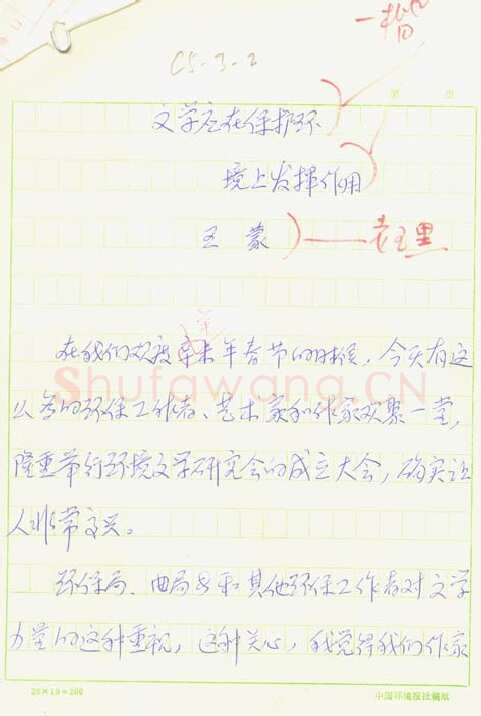 C5-3-2
第 页
文学应在保护环
境上发挥作用
王 蒙
在我们欢度辛未年春节的时候，今天有这
么多的环保工作者、艺术家和作家欢聚一堂，
隆重举行环境文学研究会的成立大会，确实让
人非常高兴。
Shufawang.CN
环保局、曲局长和其他环保工作者对文学
力量的这种重视，这种关心，我觉得我们作家
20×10=200
中国环境报社稿纸